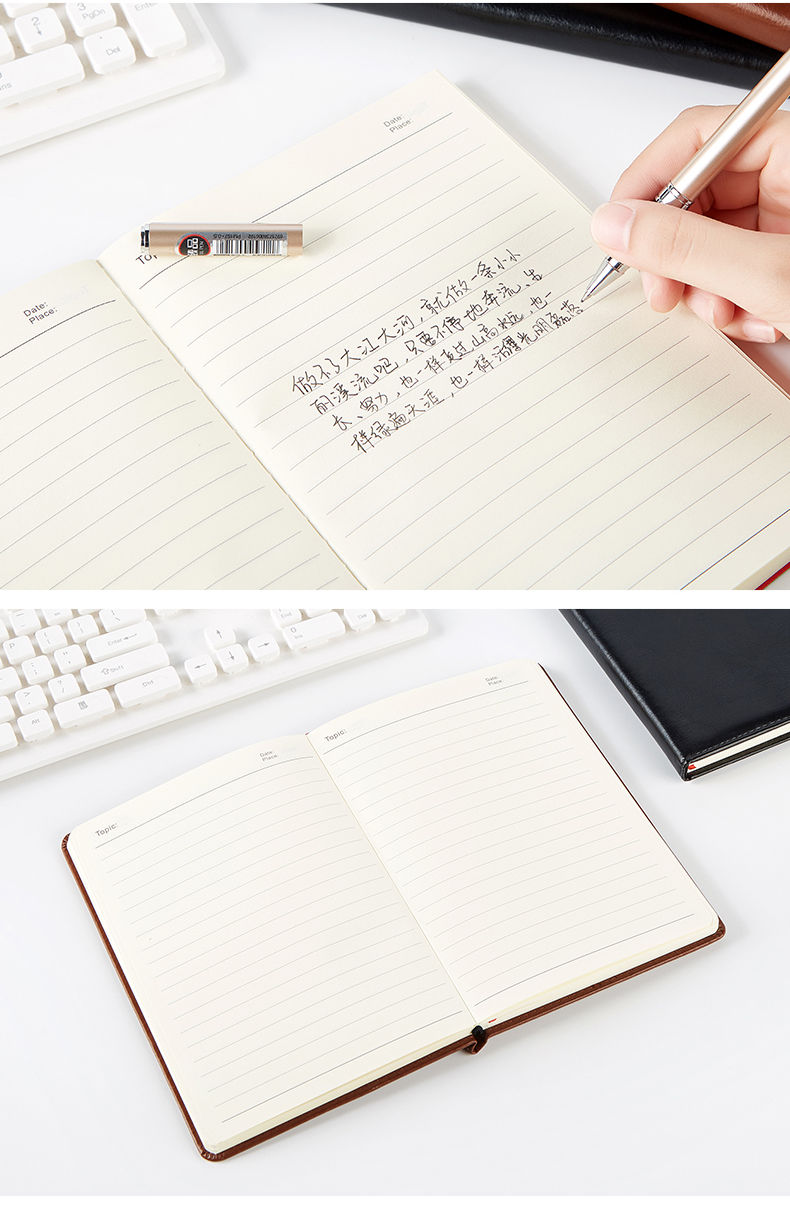 PgDn
Enter
Del
Date:
Place:
Date:
Place:
做不了大江大河，就做一条小小
的溪流吧，只要不停地奔流、生
长、努力，也一样友过山高水远，也一
样绿遍天涯，也一样活得光明磊落
Enter
Shift
Ctrl
Alt
End
Ins
Del
Date:
Place:
Topic:
Date:
Place:
Topic: